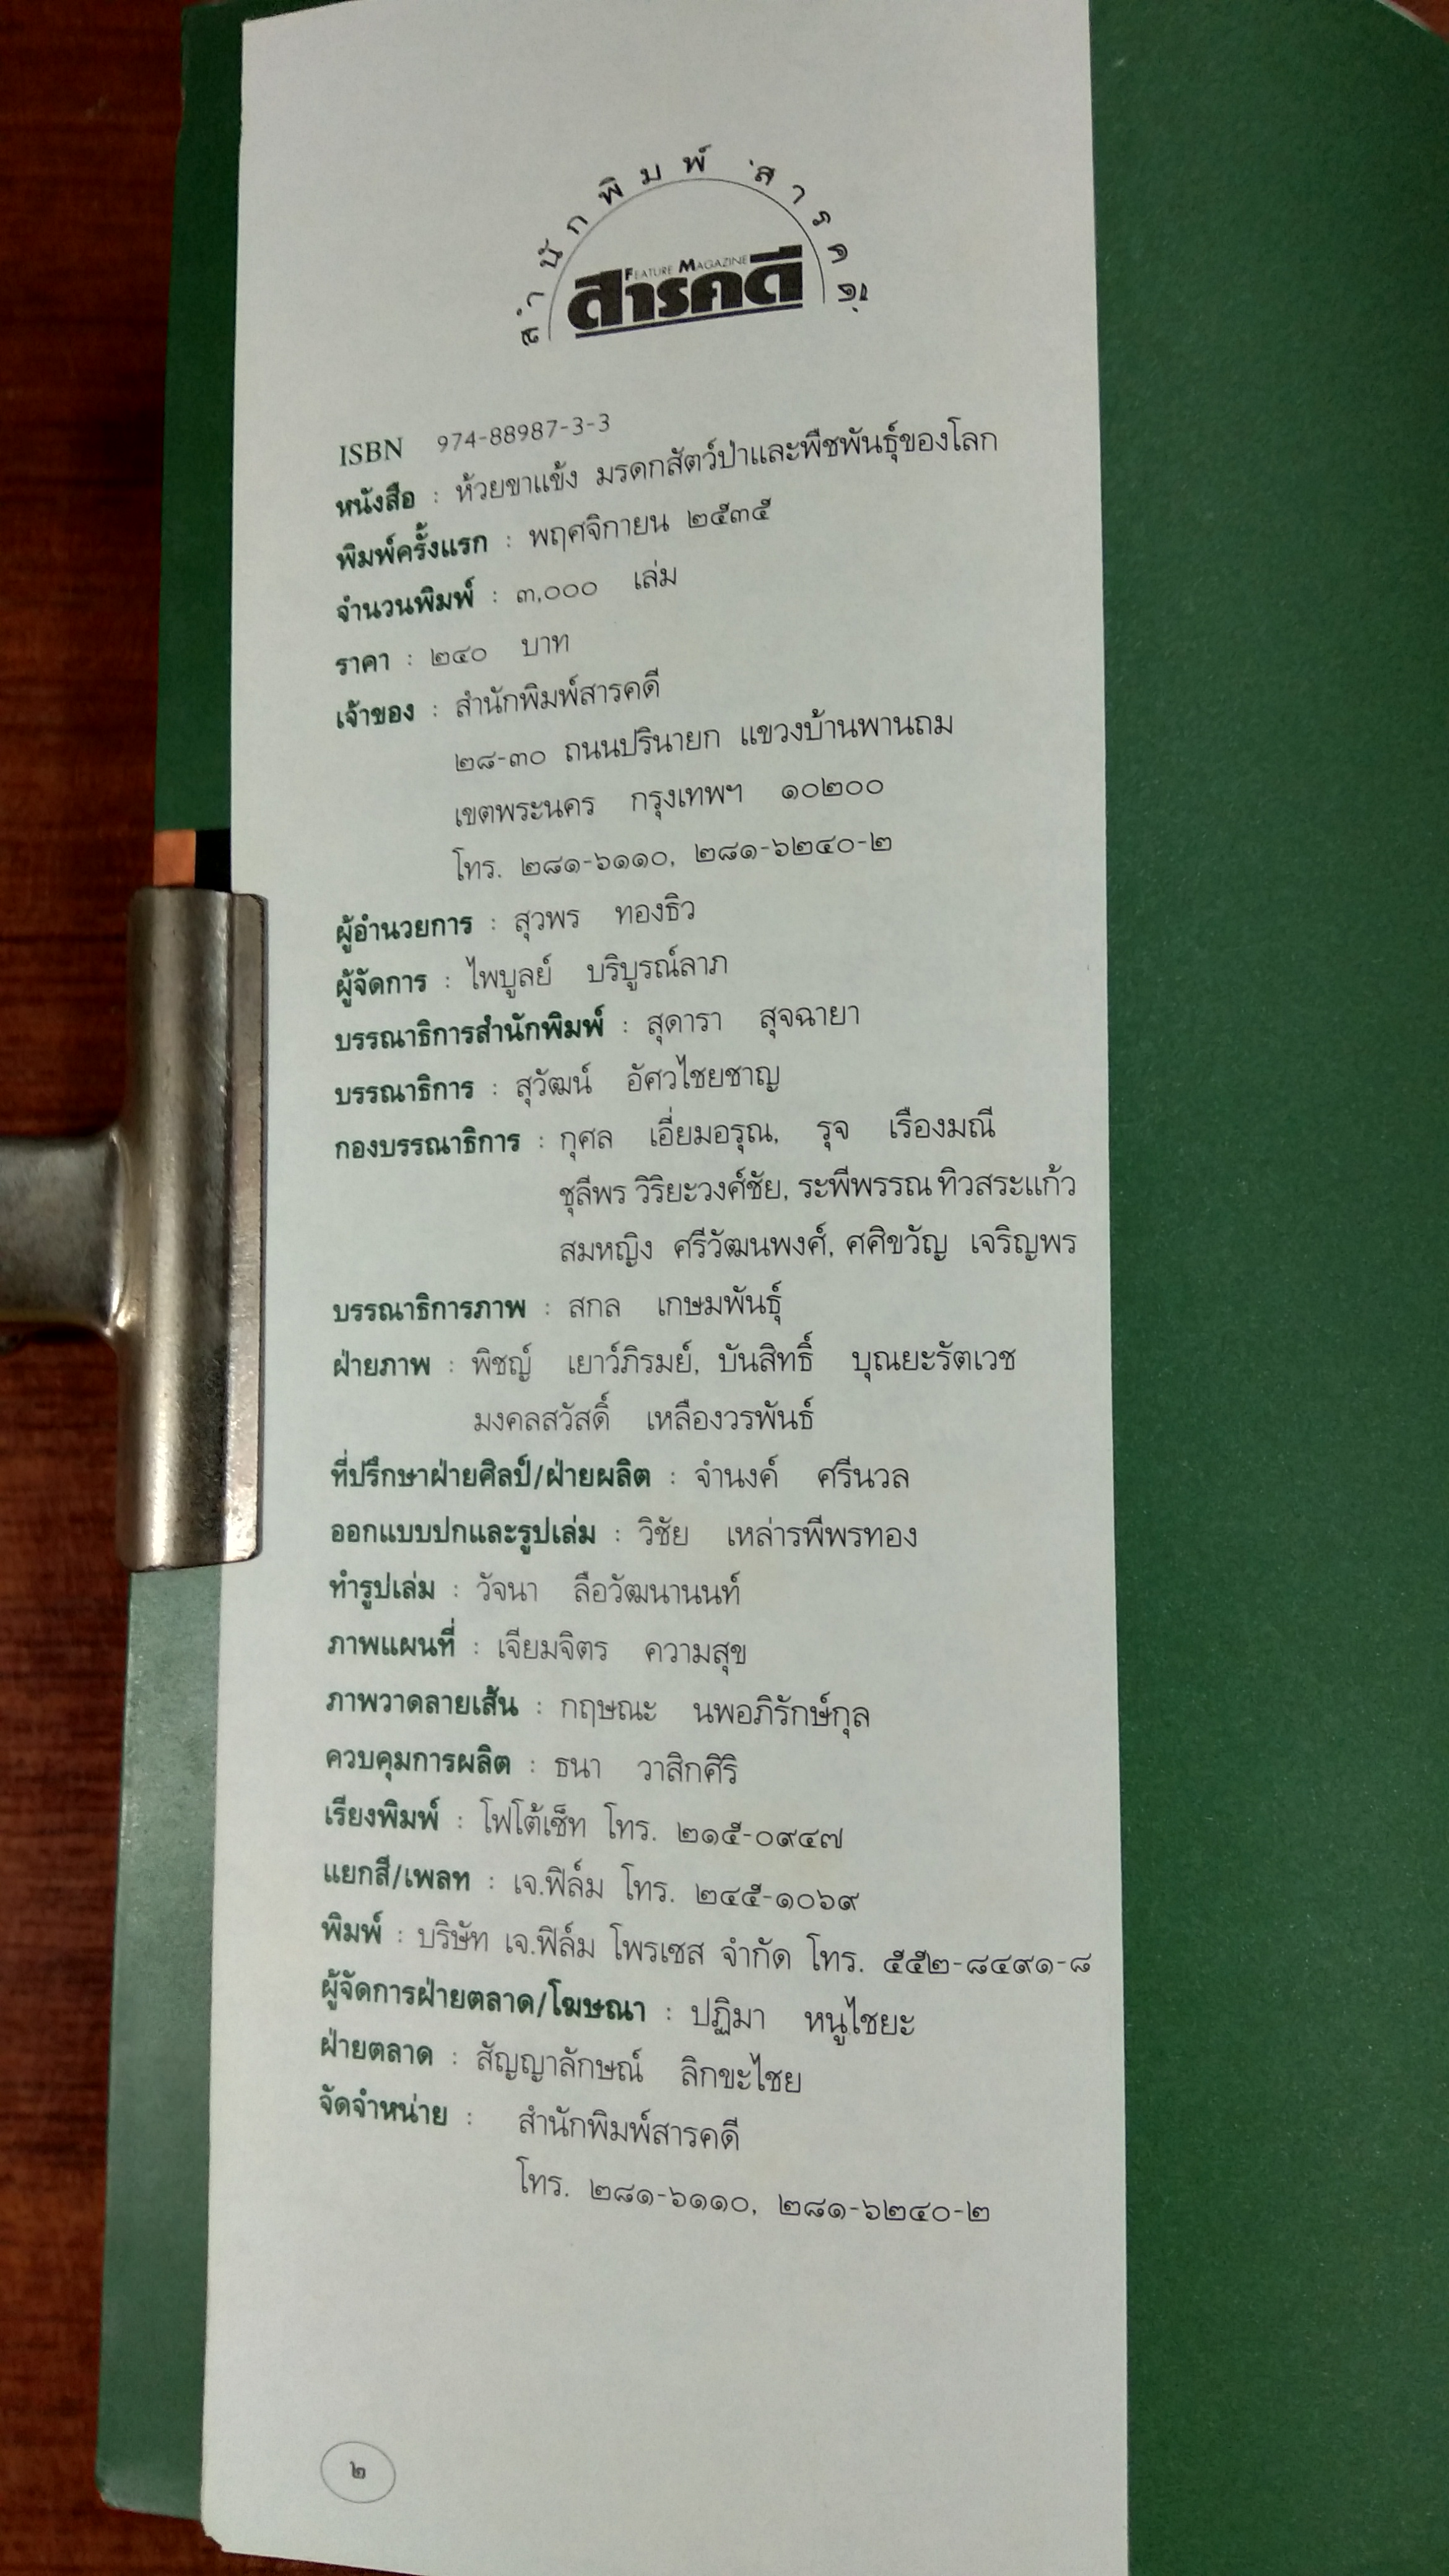 สำนักพิมพ์ สารคดี
FEATURE MAGAZINE
สารคดี
ISBN 974-88987-3-3
หนังสือ : ห้วยขาแข้ง มรดกสัตว์ป่าและพืชพันธุ์ของโลก
พิมพ์ครั้งแรก : พฤศจิกายน ๒๕๓๕
จำนวนพิมพ์ : ๓,๐๐๐ เล่ม
ราคา : ๒๔๐ บาท
เจ้าของ : สำนักพิมพ์สารคดี
๒๘-๓๐ ถนนปรินายก แขวงบ้านพานถม
เขตพระนคร กรุงเทพฯ ๑๐๒๐๐
โทร. ๒๘๑-๖๑๑๐, ๒๘๑-๖๒๔๐-๒
ผู้อำนวยการ : สุวพร ทองธิว
ผู้จัดการ : ไพบูลย์ บริบูรณ์ลาภ
บรรณาธิการสำนักพิมพ์ : สุดารา สุจฉายา
บรรณาธิการ : สุวัฒน์ อัศวไชยชาญ
กองบรรณาธิการ : กุศล เอี่ยมอรุณ, รุจ เรืองมณี
ชุลีพร วิริยะวงศ์ชัย, ระพีพรรณ ทิวสระแก้ว
สมหญิง ศรีวัฒนพงศ์, ศศิขวัญ เจริญพร
บรรณาธิการภาพ : สกล เกษมพันธุ์
ฝ่ายภาพ : พิชญ์ เยาว์ภิรมย์, บันสิทธิ์ บุณยะรัตเวช
มงคลสวัสดิ์ เหลืองวรพันธ์
ที่ปรึกษาฝ่ายศิลป์/ฝ่ายผลิต : จำนงค์ ศรีนวล
ออกแบบปกและรูปเล่ม : วิชัย เหล่ารพีพรทอง
ทำรูปเล่ม : วัจนา ลือวัฒนานนท์
ภาพแผนที่ : เจียมจิตร ความสุข
ภาพวาดลายเส้น : กฤษณะ นพอภิรักษ์กุล
ควบคุมการผลิต : ธนา วาสิกศิริ
เรียงพิมพ์ : โฟโต้เซ็ท โทร. ๒๑๕-๐๙๔๗
แยกสี/เพลท : เจ.ฟิล์ม โทร. ๒๔๕-๑๐๖๙
พิมพ์ : บริษัท เจ.ฟิล์ม โพรเซส จำกัด โทร. ๕๕๒-๘๔๙๑-๘
ผู้จัดการฝ่ายตลาด/โฆษณา : ปฏิมา หนูไชยะ
ฝ่ายตลาด : สัญญาลักษณ์ ลิกขะไชย
จัดจำหน่าย : สำนักพิมพ์สารคดี
โทร. ๒๘๑-๖๑๑๐, ๒๘๑-๖๒๔๐-๒
๒